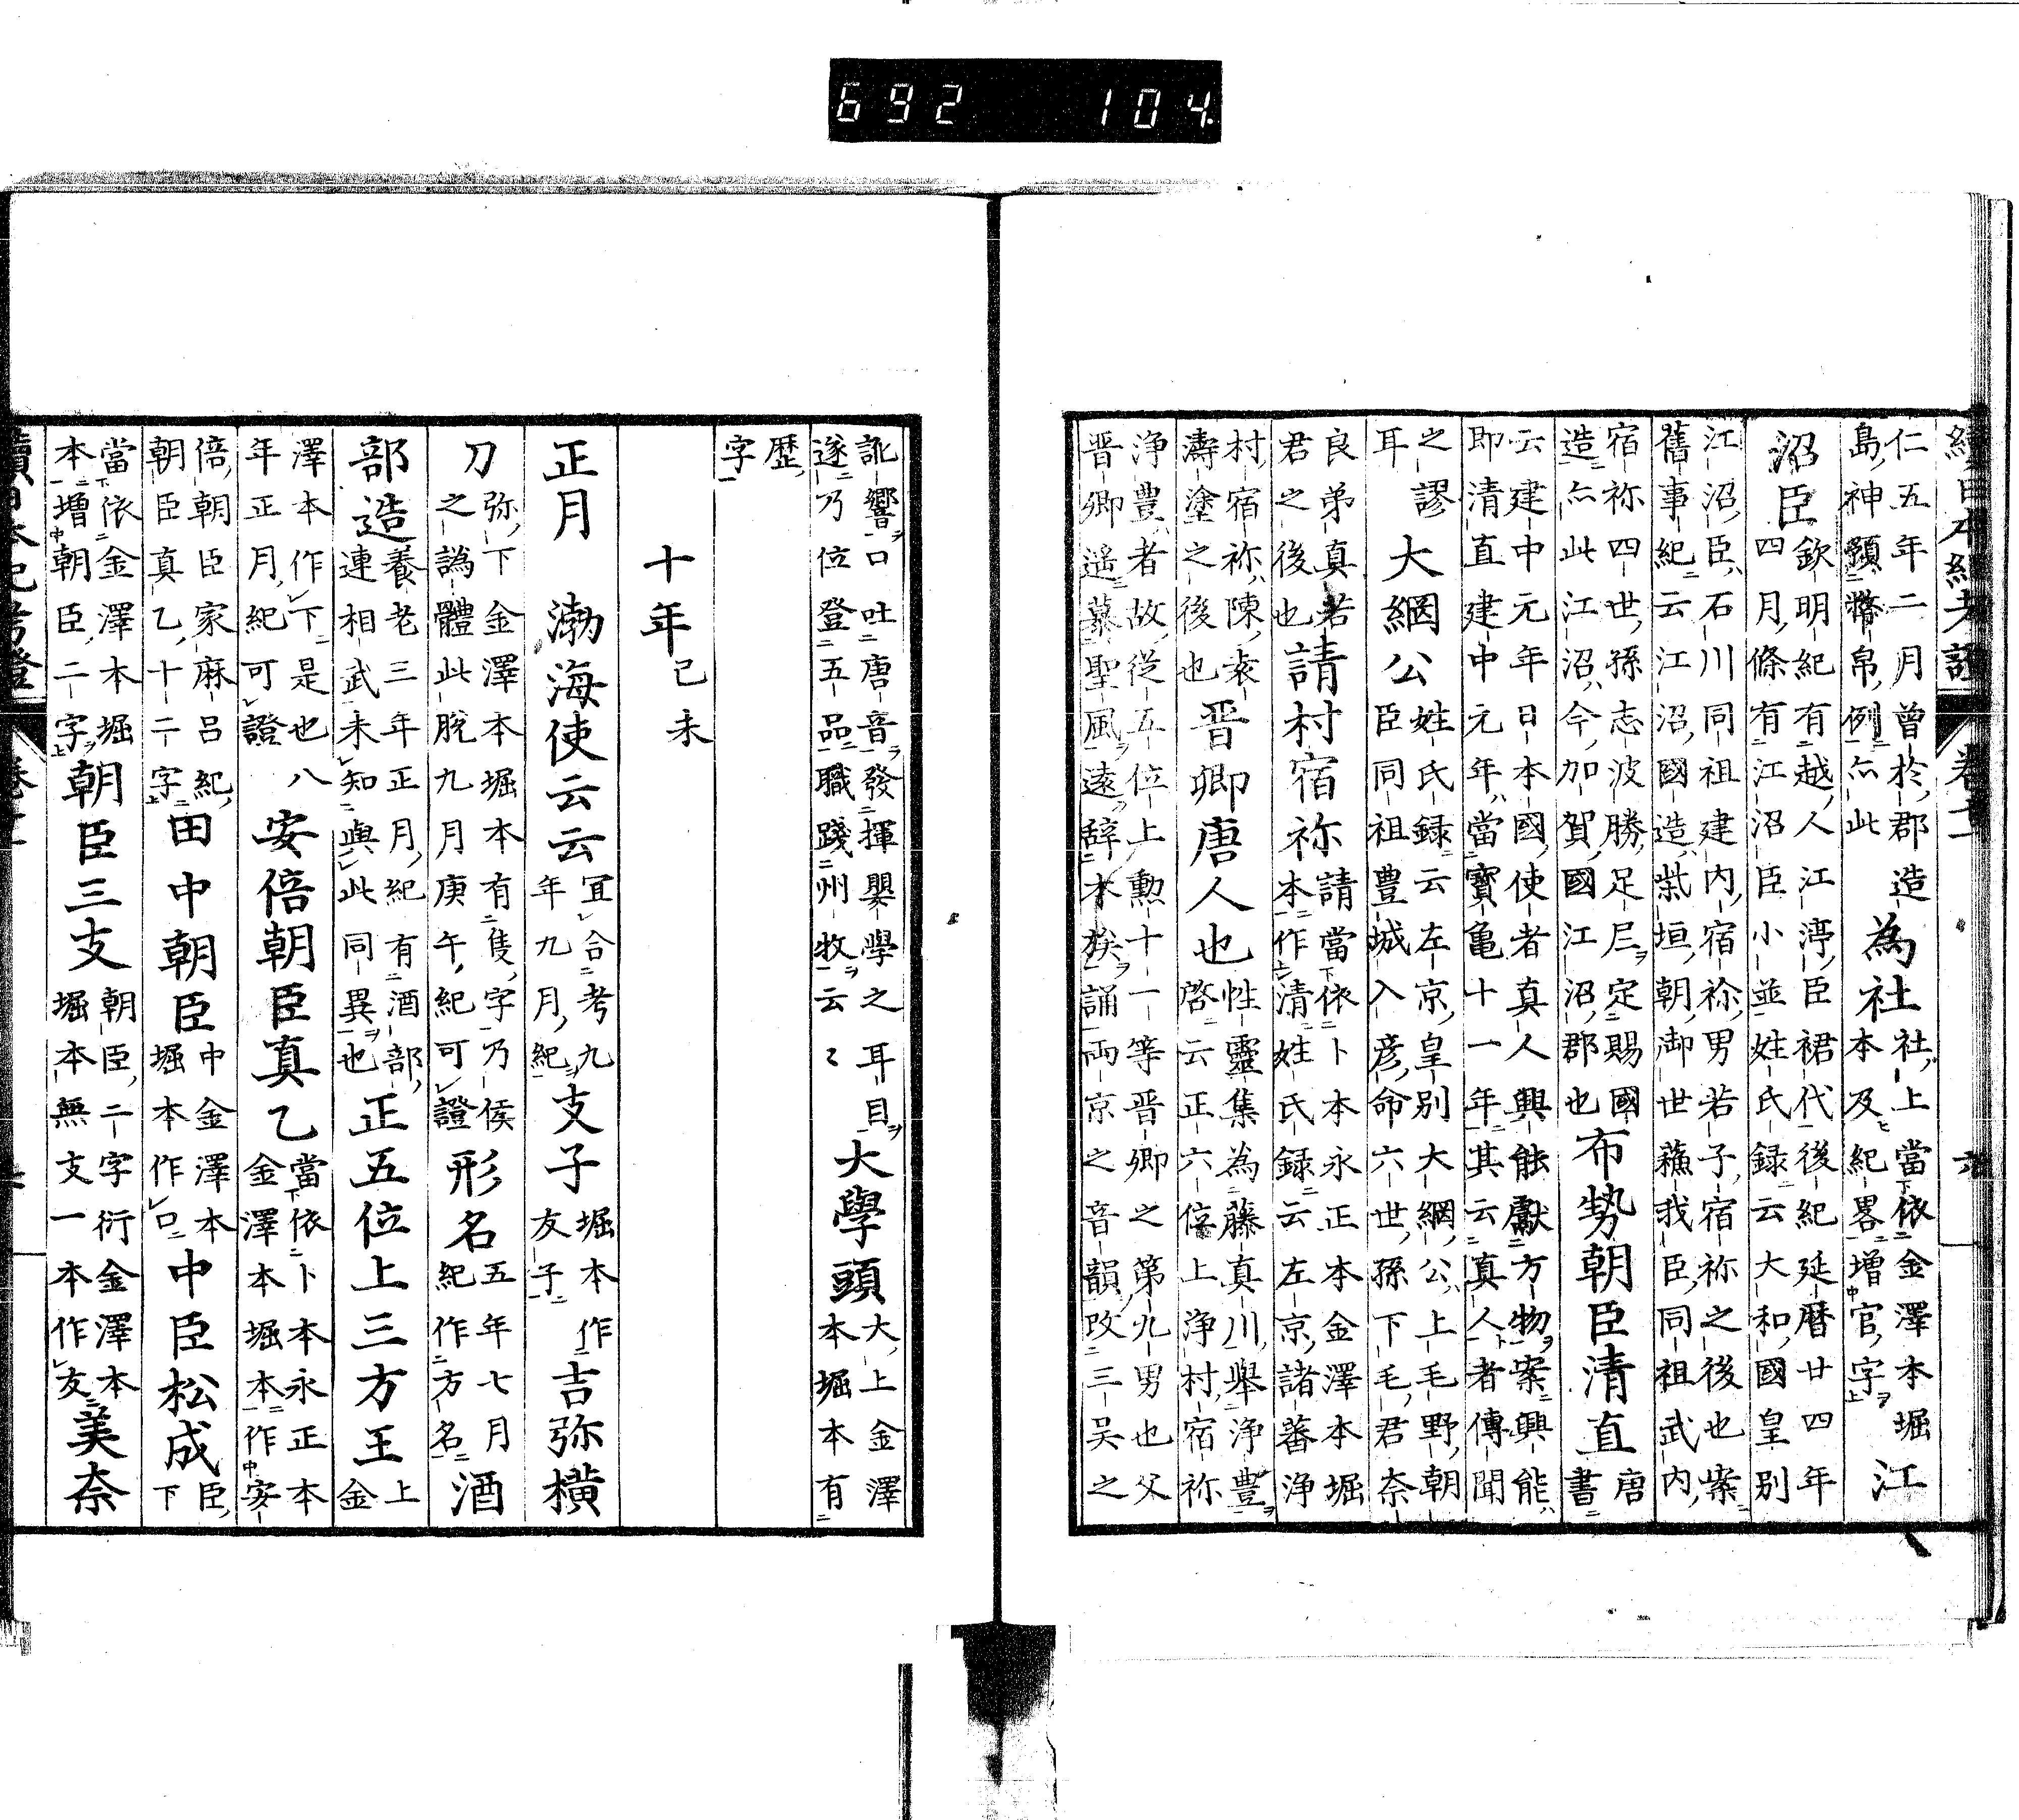 692 104.
續日本紀考證 卷十二 六
仁五年二月曽於郡造
島神額幣帛例亦此
為社
社上當依金澤本堀
本及紀畧增官字
江
沼臣
欽明紀有越人江渟臣裙代後紀延暦廿四年
四月條有江沼臣小並姓氏録云大和國皇別
江沼臣石川同祖建内宿祢男若子宿祢之後也案
舊事紀云江沼國造柴垣朝御世蘓我臣同祖武内
宿祢四世孫志波勝足尼定賜國
造亦此江沼今加賀國江沼郡也
布勢朝臣清直
唐
書
云建中元年日本國使者真人興能獻方物案興能
即清直建中元年當寳亀十一年其云真人者傳聞
之謬
耳
大網公
姓氏録云左京皇別大網公上毛野朝
臣同祖豊城入彦命六世孫下毛君奈
良弟真若
君之後也
請村宿祢
請當依卜本永正本金澤本堀
本作清姓氏録云左京諸蕃浄
村宿祢陳袁
濤塗之後也
晋卿唐人也
性靈集為藤真川舉浄豊
啓云正六位上浄村宿祢
浄豊者故從五位上勲十一等晋卿之第九男也父
晋卿遥慕聖風遠辞本族誦両京之音韻改三吴之
訛響口吐唐音發揮嬰學之耳目
遂乃位登五品職踐州牧云〻
大學頭
大上金澤
本堀本有
歴
字
十年己未
正月
渤海使云云
宜合考九
年九月紀
支子
堀本作
友子
吉弥横
刀
弥下金澤本堀本有隻字乃侯
之譌體此脱九月庚午紀可證
形名
五年七月
紀作方名
酒
部造
養老三年正月紀有酒部
連相武未知與此同異也
正五位上三方王
上
金
澤本作下是也八
年正月紀可證
安倍朝臣真乙
當依卜本永正本
金澤本堀本作安
倍朝臣家麻呂紀
朝臣真乙十二字
田中朝臣
中金澤本
堀本作口
中臣松成
臣
下
當依金澤本堀
本增朝臣二字
朝臣三支
朝臣二字衍金澤本
堀本無支一本作友
美奈
續日本紀考證 卷十二